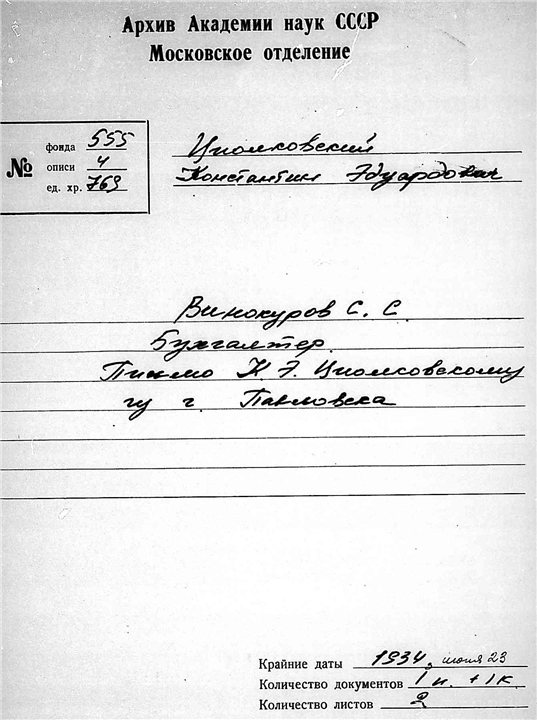 Архив Академии наук СССР
Московское отделение
№
фонда 555
описи 4
ед. хр. 769
Циолковский
Константин Эдуардович
Винокуров С. С.
Бухгалтер.
Письмо К. Э. Циолковскому
из г. Павловска
Крайние даты 1934, июня 23
Количество документов 1 п. + 1 к.
Количество листов 2